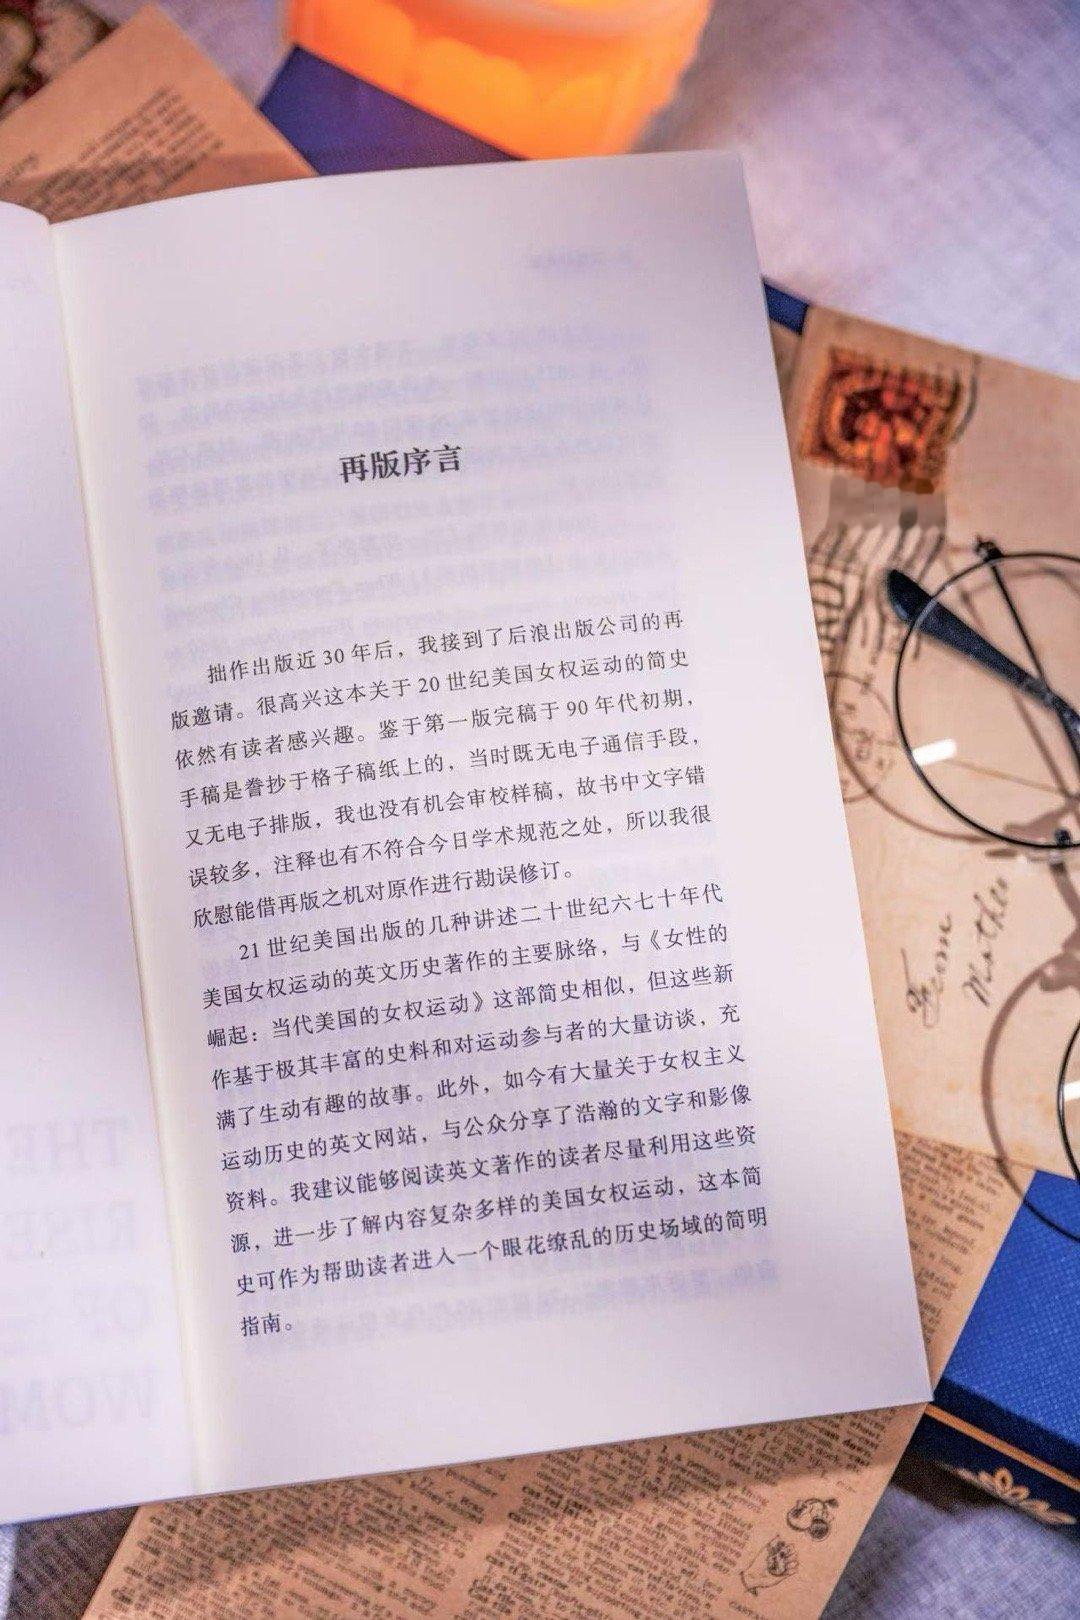 再版序言
拙作出版近 30 年后，我接到了后浪出版公司的再
版邀请。很高兴这本关于 20 世纪美国女权运动的简史
依然有读者感兴趣。鉴于第一版完稿于 90 年代初期，
手稿是誊抄于格子稿纸上的，当时既无电子通信手段，
又无电子排版，我也没有机会审校样稿，故书中文字错
误较多，注释也有不符合今日学术规范之处，所以我很
欣慰能借再版之机对原作进行勘误修订。
21 世纪美国出版的几种讲述二十世纪六七十年代
美国女权运动的英文历史著作的主要脉络，与《女性的
崛起：当代美国的女权运动》这部简史相似，但这些新
作基于极其丰富的史料和对运动参与者的大量访谈，充
满了生动有趣的故事。此外，如今有大量关于女权主义
运动历史的英文网站，与公众分享了浩瀚的文字和影像
资料。我建议能够阅读英文著作的读者尽量利用这些资
源，进一步了解内容复杂多样的美国女权运动，这本简
史可作为帮助读者进入一个眼花缭乱的历史场域的简明
指南。
From
Mother